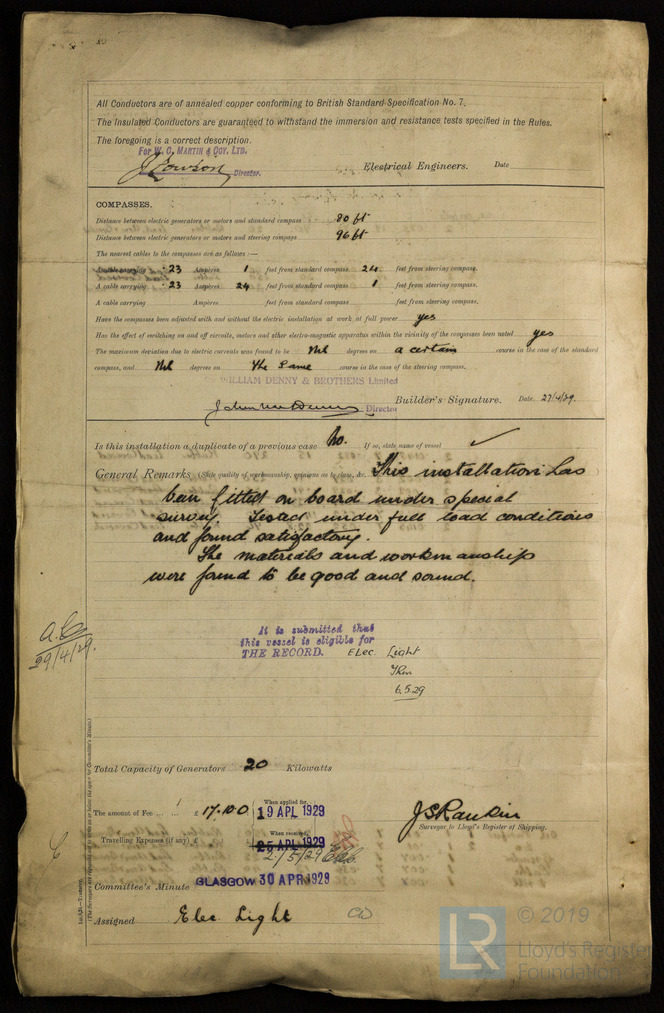 All Conductors are of annealed copper conforming to British Standard Specification No. 7.
The Insulated Conductors are guaranteed to withstand the immersion and resistance tests specified in the Rules.
The foregoing is a correct description.
For W. C. MARTIN & COY. LTD.
Director. Electrical Engineers. Date
COMPASSES.
Distance between electric generators or motors and standard compass 80 ft
Distance between electric generators or motors and steering compass 96 ft
The nearest cables to the compasses are as follows :—
A cable carrying 23 Ampères 1 feet from standard compass 24 feet from steering compass.
A cable carrying 23 Ampères 24 feet from standard compass 1 feet from steering compass.
A cable carrying Ampères feet from standard compass feet from steering compass.
Have the compasses been adjusted with and without the electric installation at work at full power yes
Has the effect of switching on and off circuits, motors and other electro-magnetic apparatus within the vicinity of the compasses been noted yes
The maximum deviation due to electric currents was found to be Nil degrees on a certain course in the case of the standard
compass, and Nil degrees on the same course in the case of the steering compass.
WILLIAM DENNY & BROTHERS Limited
Director Builder's Signature. Date 27/4/29.
Is this installation a duplicate of a previous case No. If so, state name of vessel ✓
General Remarks (State quality of workmanship, opinions as to class, &c. This installation has
been fitted on board under special
survey. Tested under full load conditions
and found satisfactory.
The materials and workmanship
were found to be good and sound.
It is submitted that
this vessel is eligible for
THE RECORD. Elec. Light
6.5.29
29/4/29.
Total Capacity of Generators 20 Kilowatts
The amount of Fee ... £ 17.10.0 When applied for, 19 APL 1929
J S Rankin
Surveyor to Lloyd's Register of Shipping.
Travelling Expenses (if any) £ When received, 25 APL 1929
2/5/29
Committee's Minute GLASGOW 30 APR 1929
Assigned Elec. Light
© 2019
LR
Lloyd's Register
Foundation